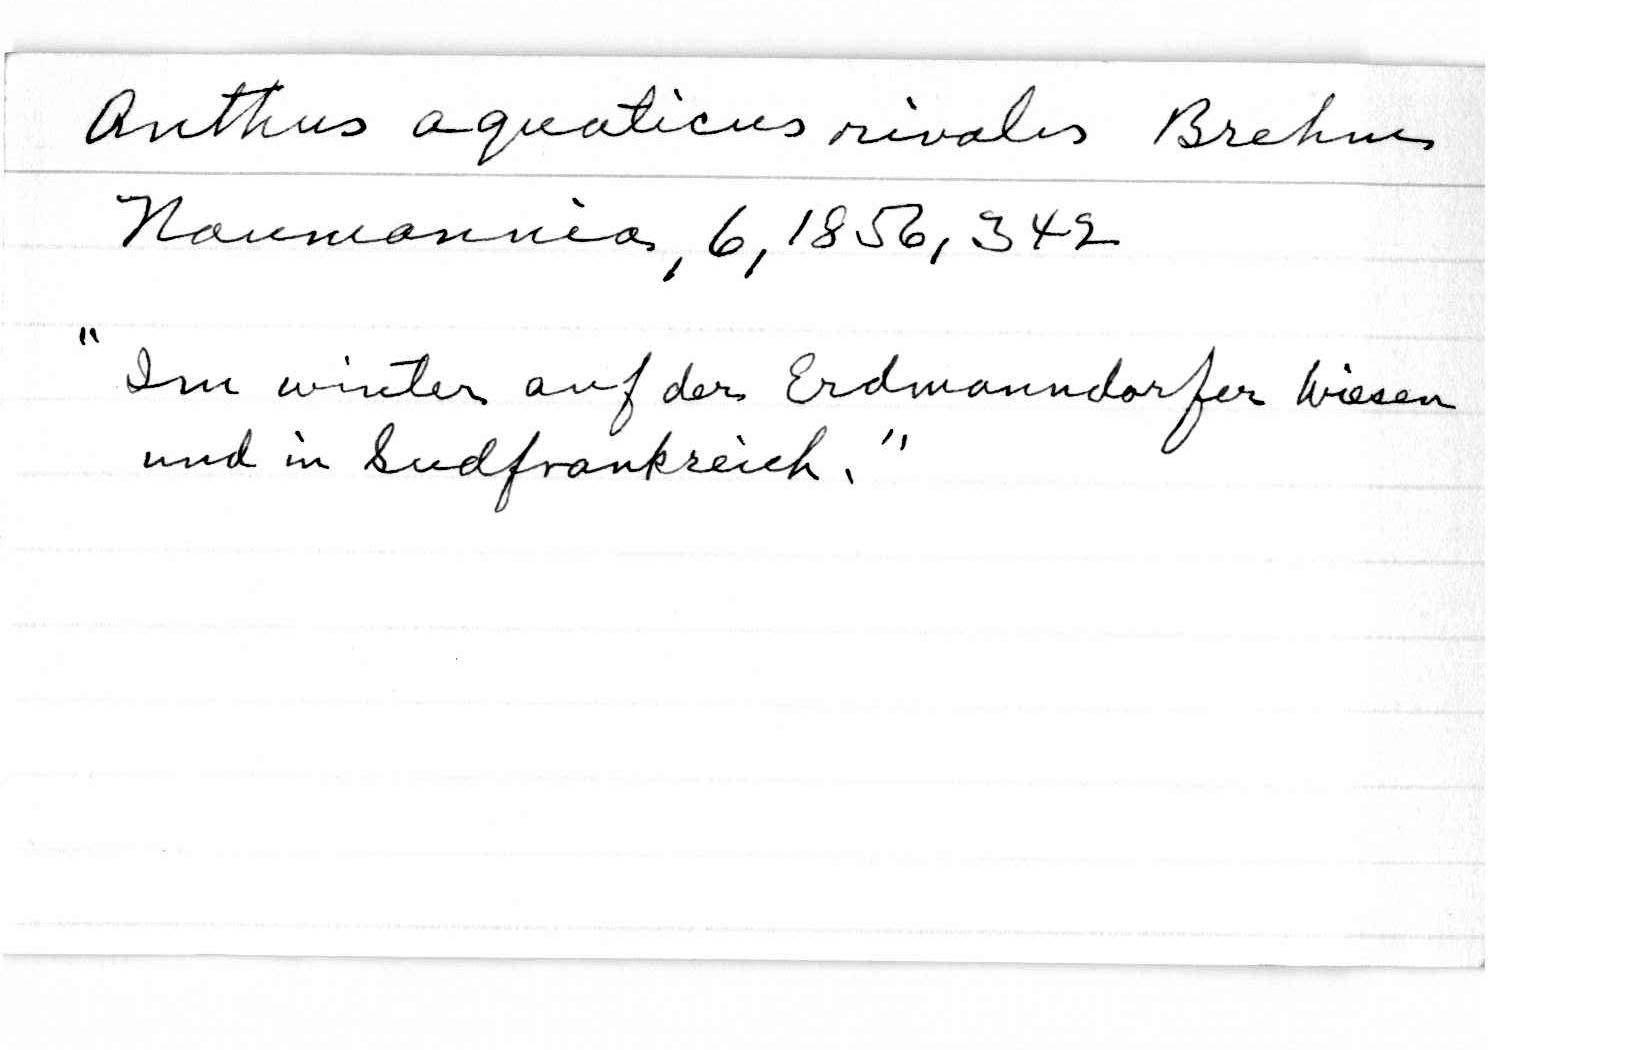 Anthus aquaticus rivalis Brehm
Naumannia, 6, 1856, 342
"Im winter auf der Erdmanndorfer Wiesen
und in Sudfrankreich."